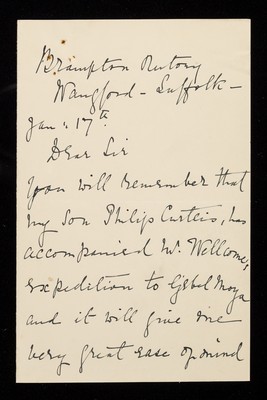 Brampton Rectory
Wangford - Suffolk -
Jan: 17th
Dear Sir
you will remember that
my son Philip Curteis, has
accompanied Mr. Wellcome,
expedition to Gebel Moya
and it will give me
very great ease of mind